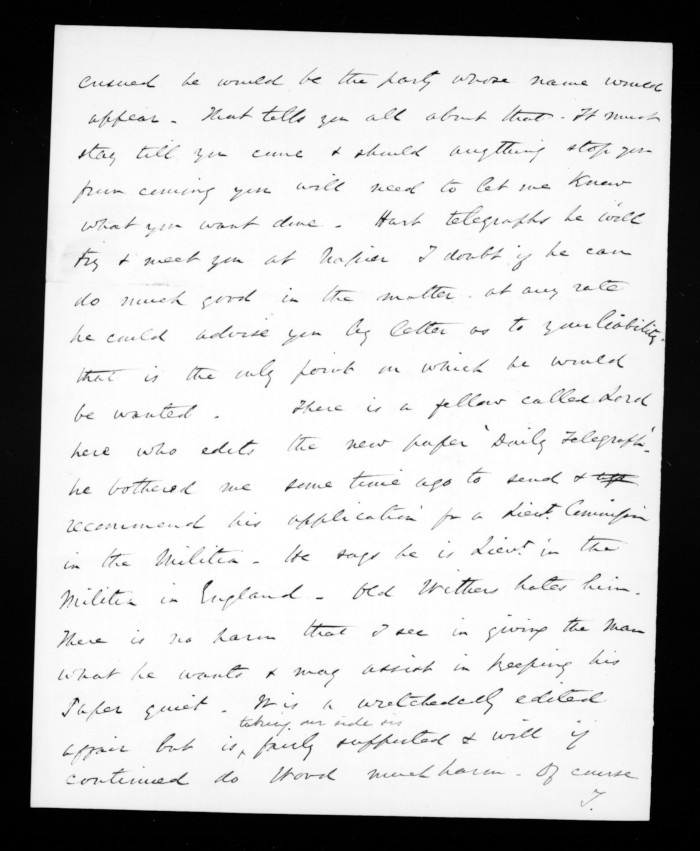 ensued he would be the party whose name would
appear - That tells you all about that - It must
stay till you come & should anything stop you
from coming you will need to let me know
what you want done - Hart telegraphs he will
try & meet you at Napier I doubt if he can
do much good in the matter - at any rate
he could advise you by letter as to your liability -
that is the only point on which he would
be wanted - There is a fellow called Lord
here who edits the new paper 'Daily Telegraph' -
he bothered me some time ago to send &
recommend his application for a Lieut. Commission
in the Militia - He says he is Lieut. in the
Militia in England - Old Withers hates him -
There is no harm that I see in giving the man
what he wants & may assist in keeping his
Paper quiet - It is a wretchedly edited
taking our side is
affair but is, fairly supported & will if
continued do Wood much harm - Of course
I.